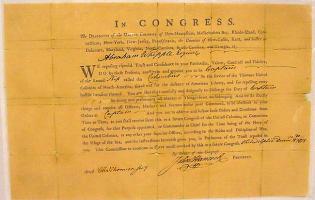 IN CONGRESS.
The DELEGATES of the UNITED COLONIES of New-Hampshire, Massachusetts Bay, Rhode-Island, Con-
necticut, New-York, New-Jersey, Pennsylvania, the Counties of New-Castle, Kent, and Sussex on
Delaware, Maryland, Virginia, North-Carolina, South-Carolina, to
Abraham Whipple Esquire
WE reposing especial Trust and Confidence in your Patriotism, Valour, Conduct and Fidelity,
DO by these Presents, constitute and appoint you to be Captain
of the Armed Ship called the Columbus in the Service of the Thirteen United
Colonies of North-America, fitted out for the defence of American Liberty, and for repelling every
hostile Invasion thereof. You are therefore carefully and diligently to discharge the Duty of Captain
by doing and performing all manner of Things thereunto belonging. And we do strictly
charge and require all Officers, Marines and Seamen under your Command, to be obedient to your
Orders as Captain And you are to observe and follow such Orders and Directions from
Time to Time as you shall receive from this or a future Congress of the United Colonies, or Committee
of Congress, for that Purpose appointed, or Commander in Chief for the Time being of the Navy of
the United Colonies, or any other your superior Officer, according to the Rules and Discipline of War,
the Usage of the Sea, and the Instructions herewith given you, in Pursuance of the Trust reposed in
you. This Commission to continue in Force until revoked by this or a future Congress.
By Order of the Congress
John Hancock
PRESIDENT.
Attest Cha Thomson Secy